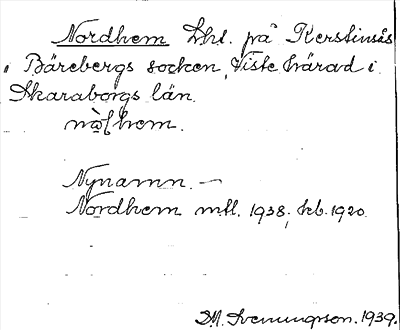 Nordhem Lht. på Kerstinsås
i Bärebergs socken, Viste härad i
Skaraborgs län.
Nynamn. —
Nordhem mtl. 1938, kb. 1920.
D.M. Svenungsson. 1939.